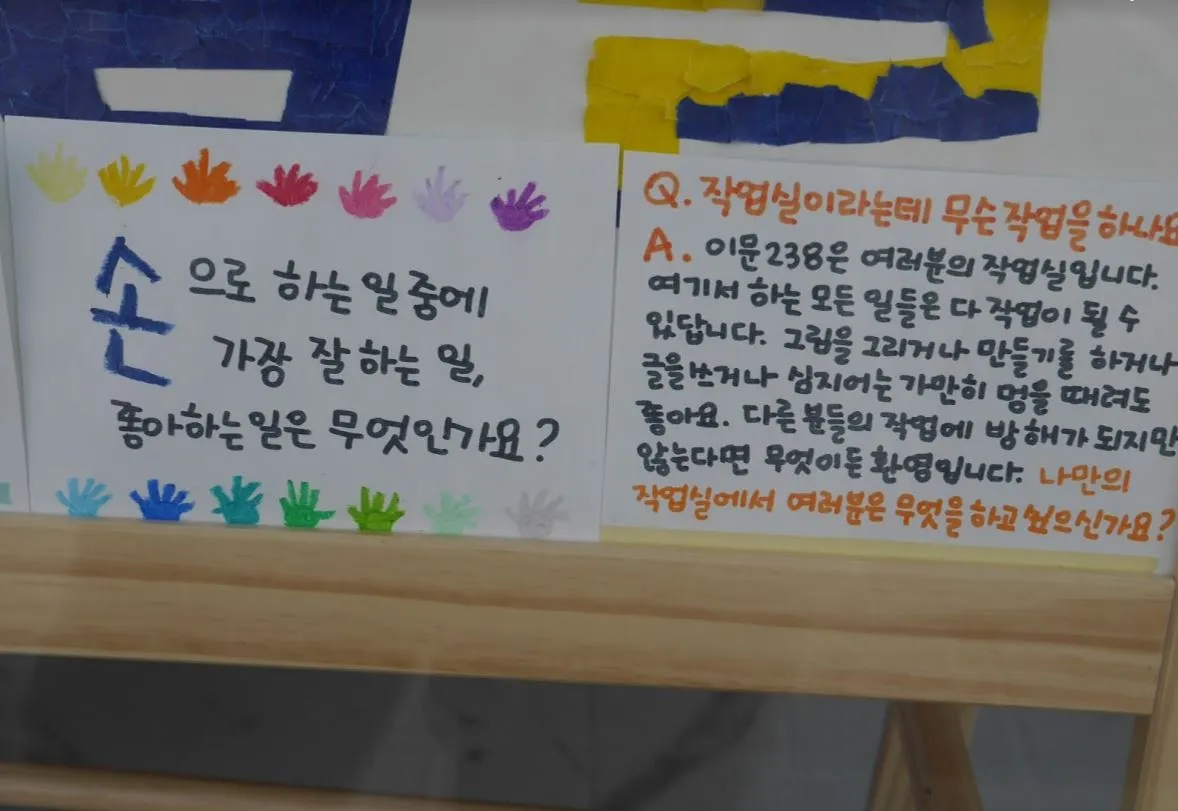 손으로 하는 일 중에
가장 잘 하는 일,
좋아하는 일은 무엇인가요?
Q. 작업실이라는데 무슨 작업을 하나요
A. 이문238은 여러분의 작업실입니다.
여기서 하는 모든 일들은 다 작업이 될 수
있답니다. 그림을 그리거나 만들기를 하거나
글을 쓰거나 심지어는 가만히 멍을 때려도
좋아요. 다른 분들의 작업에 방해가 되지만
않는다면 무엇이든 환영입니다. 나만의
작업실에서 여러분은 무엇을 하고 싶으신가요?